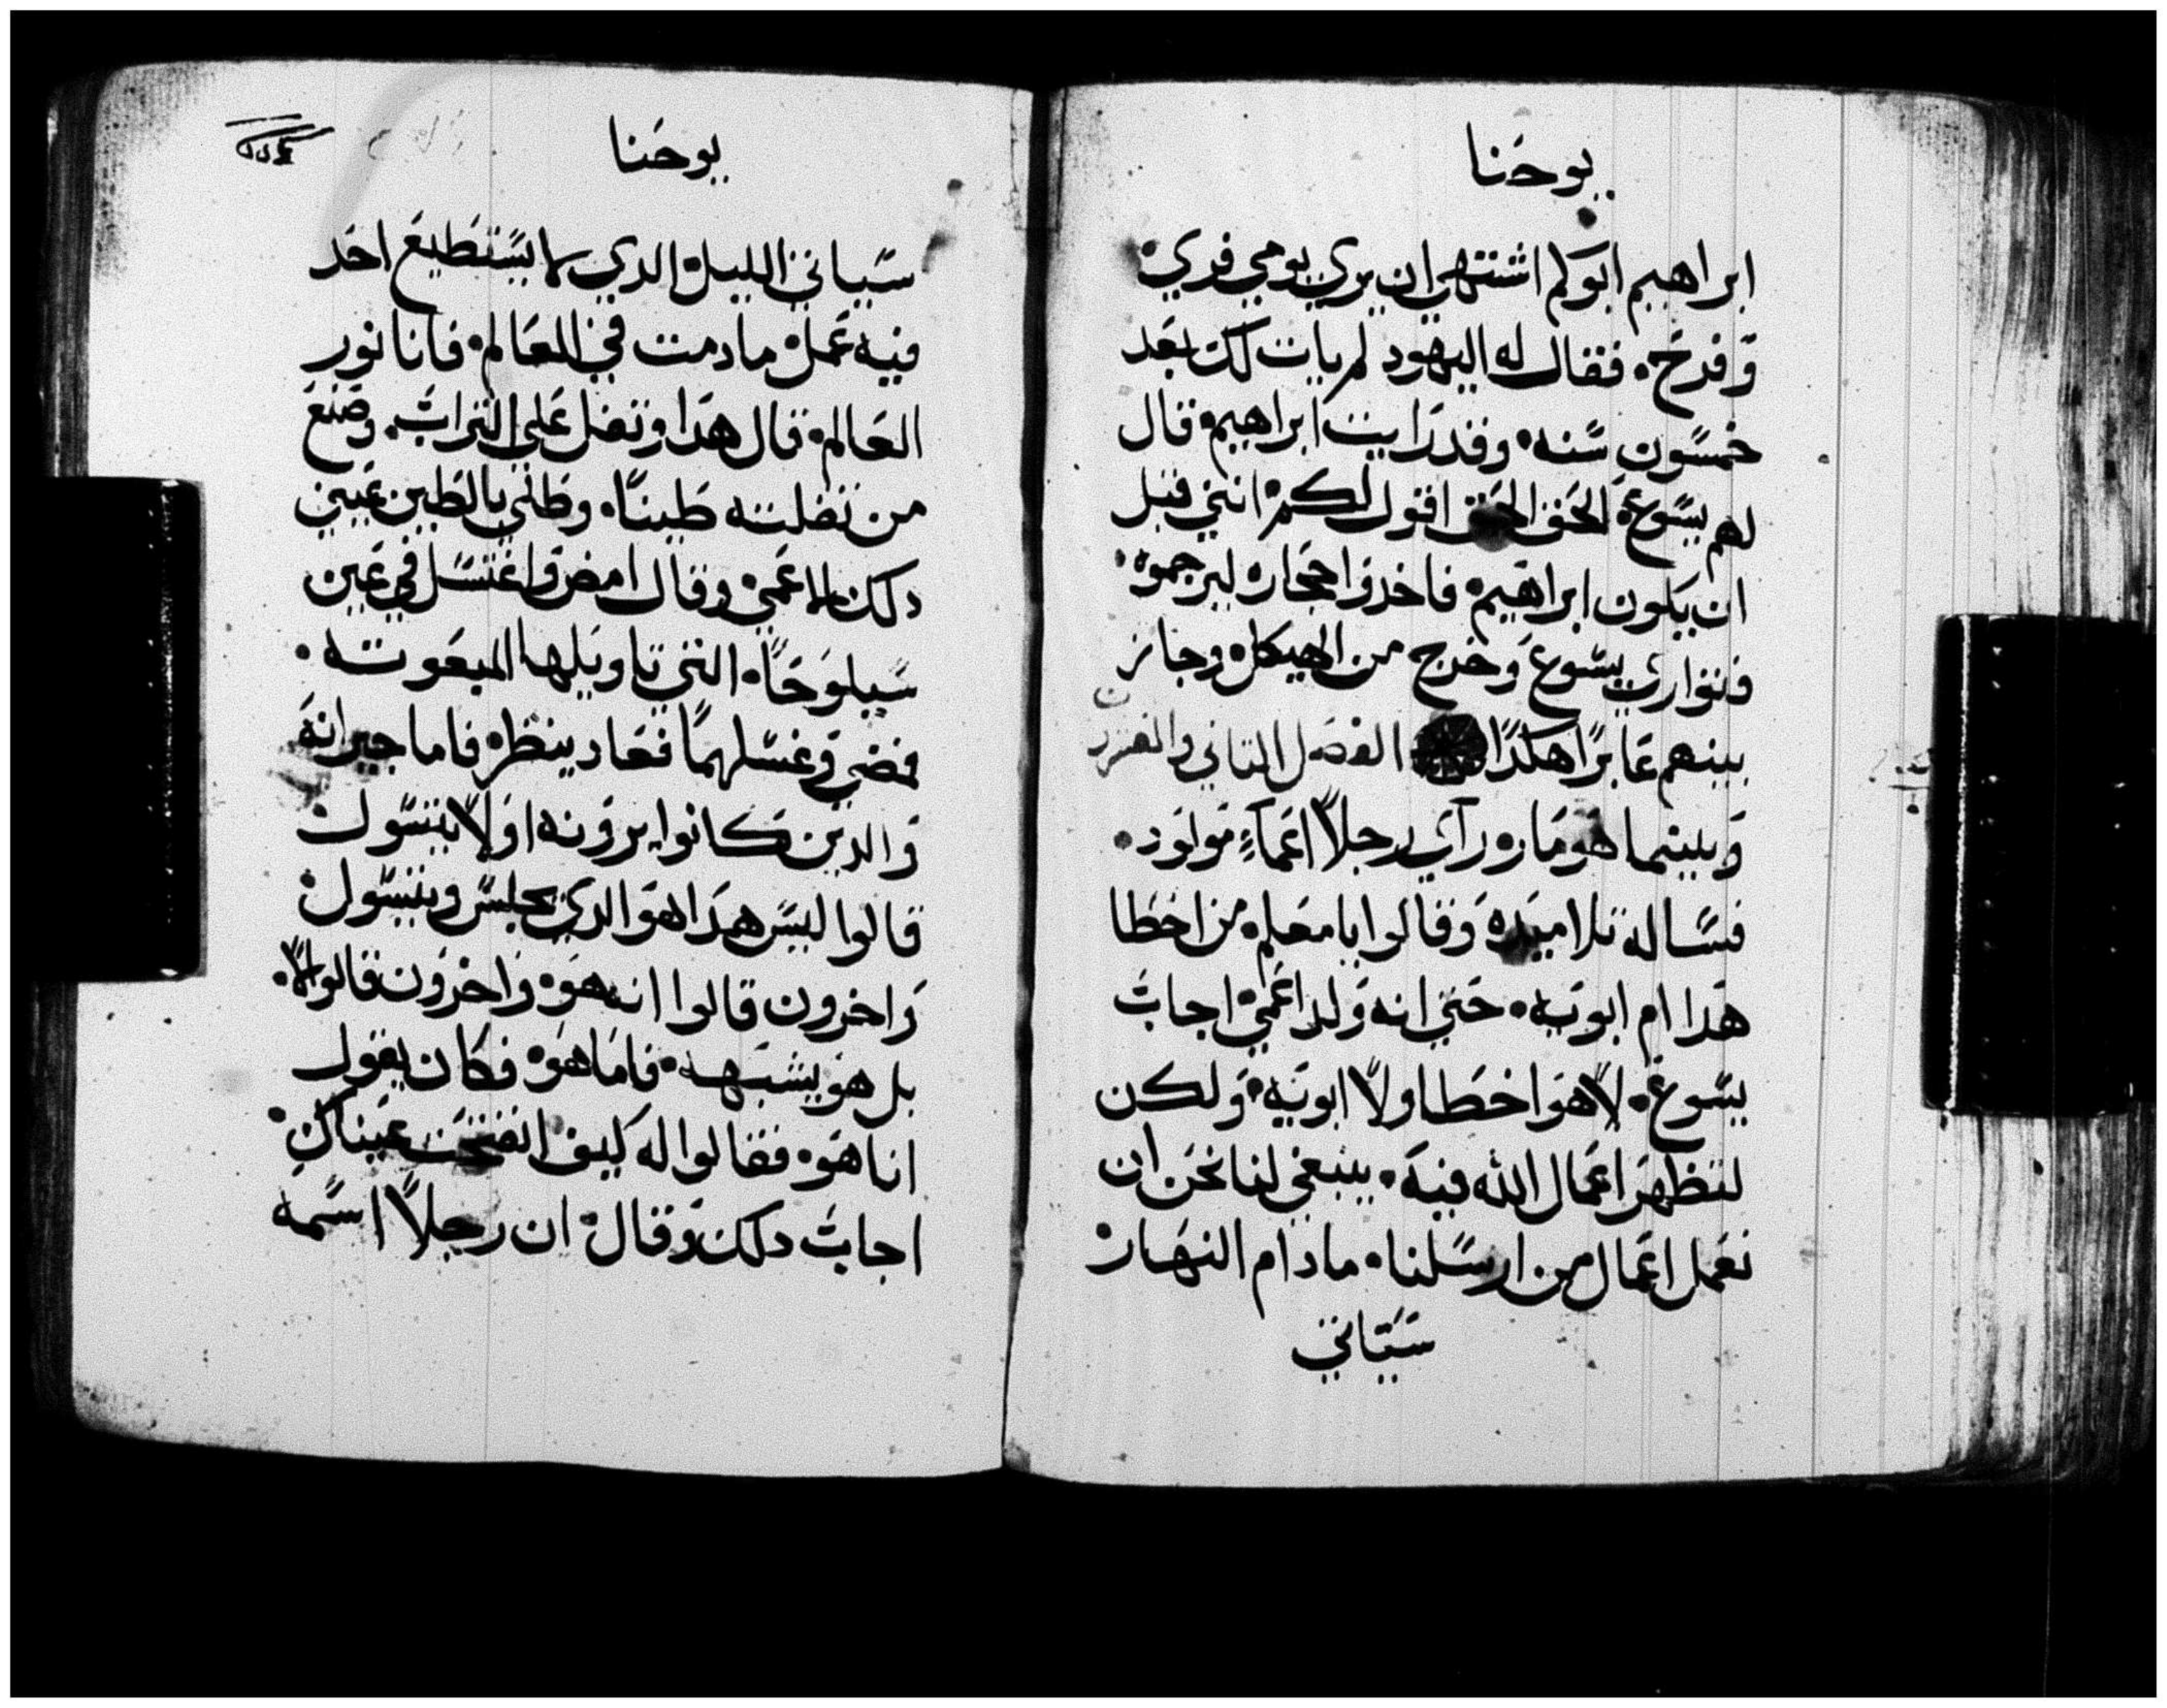 يوحنا
ابراهيم ابوكم اشتهي ان يري يومي فري
وفرح. فقال له اليهود لم يات لك بعد
خمسون سنه. وقد رايت ابراهيم. قال
لهم يسوع. الحق الحق اقول لكم. انني قبل
ان يكون ابراهيم. فاخدوا حجاره ليرجموه.
فتواري يسوع وخرج من الهيكل. وجاز
بينهم عابرًا هكدًا الفصل التاني والعشرون
وبينما هو مار. رآي رجلاً اعماءٍ مولود.
فساله تلاميده وقالوا يا معلم. من اخطا
هدا ام ابويه. حتي انه ولد اعمي. اجاب
يسوع. لا هوا خطا ولا ابويه. ولكن
لتظهر اعمال الله فيه. ينبغي لنا نحن ان
نعمل اعمال من ارسلنا. مادام النهار
سياتي
يوحنا
سياتي الليل. الدي لا يستطيع احد
فيه عمل. مادمت في العالم. فانا نور
العالم. قال هدا وتفل علي التراب. وصنع
من تفلته طينًا. وطلي بالطين عيني
دلك الاعمي. وقال امض واغتسل في عين
سيلوحا. التي تاويلها المبعوته.
فمضي وغسلهما فعاد ينظر. فاما جيرانه
والدين كانوا يرونه اولاً يتسول
قالوا ليس هدا هو الدي يجلس ويتسول.
واخرون قالوا انه هو. واخرون قالوا لا.
بل هو يشبهه. فاما هو. فكان يقول
انا هو. فقالوا له كيف انفتحت عيناك.
اجاب دلك وقال. ان رجلاً اسمه